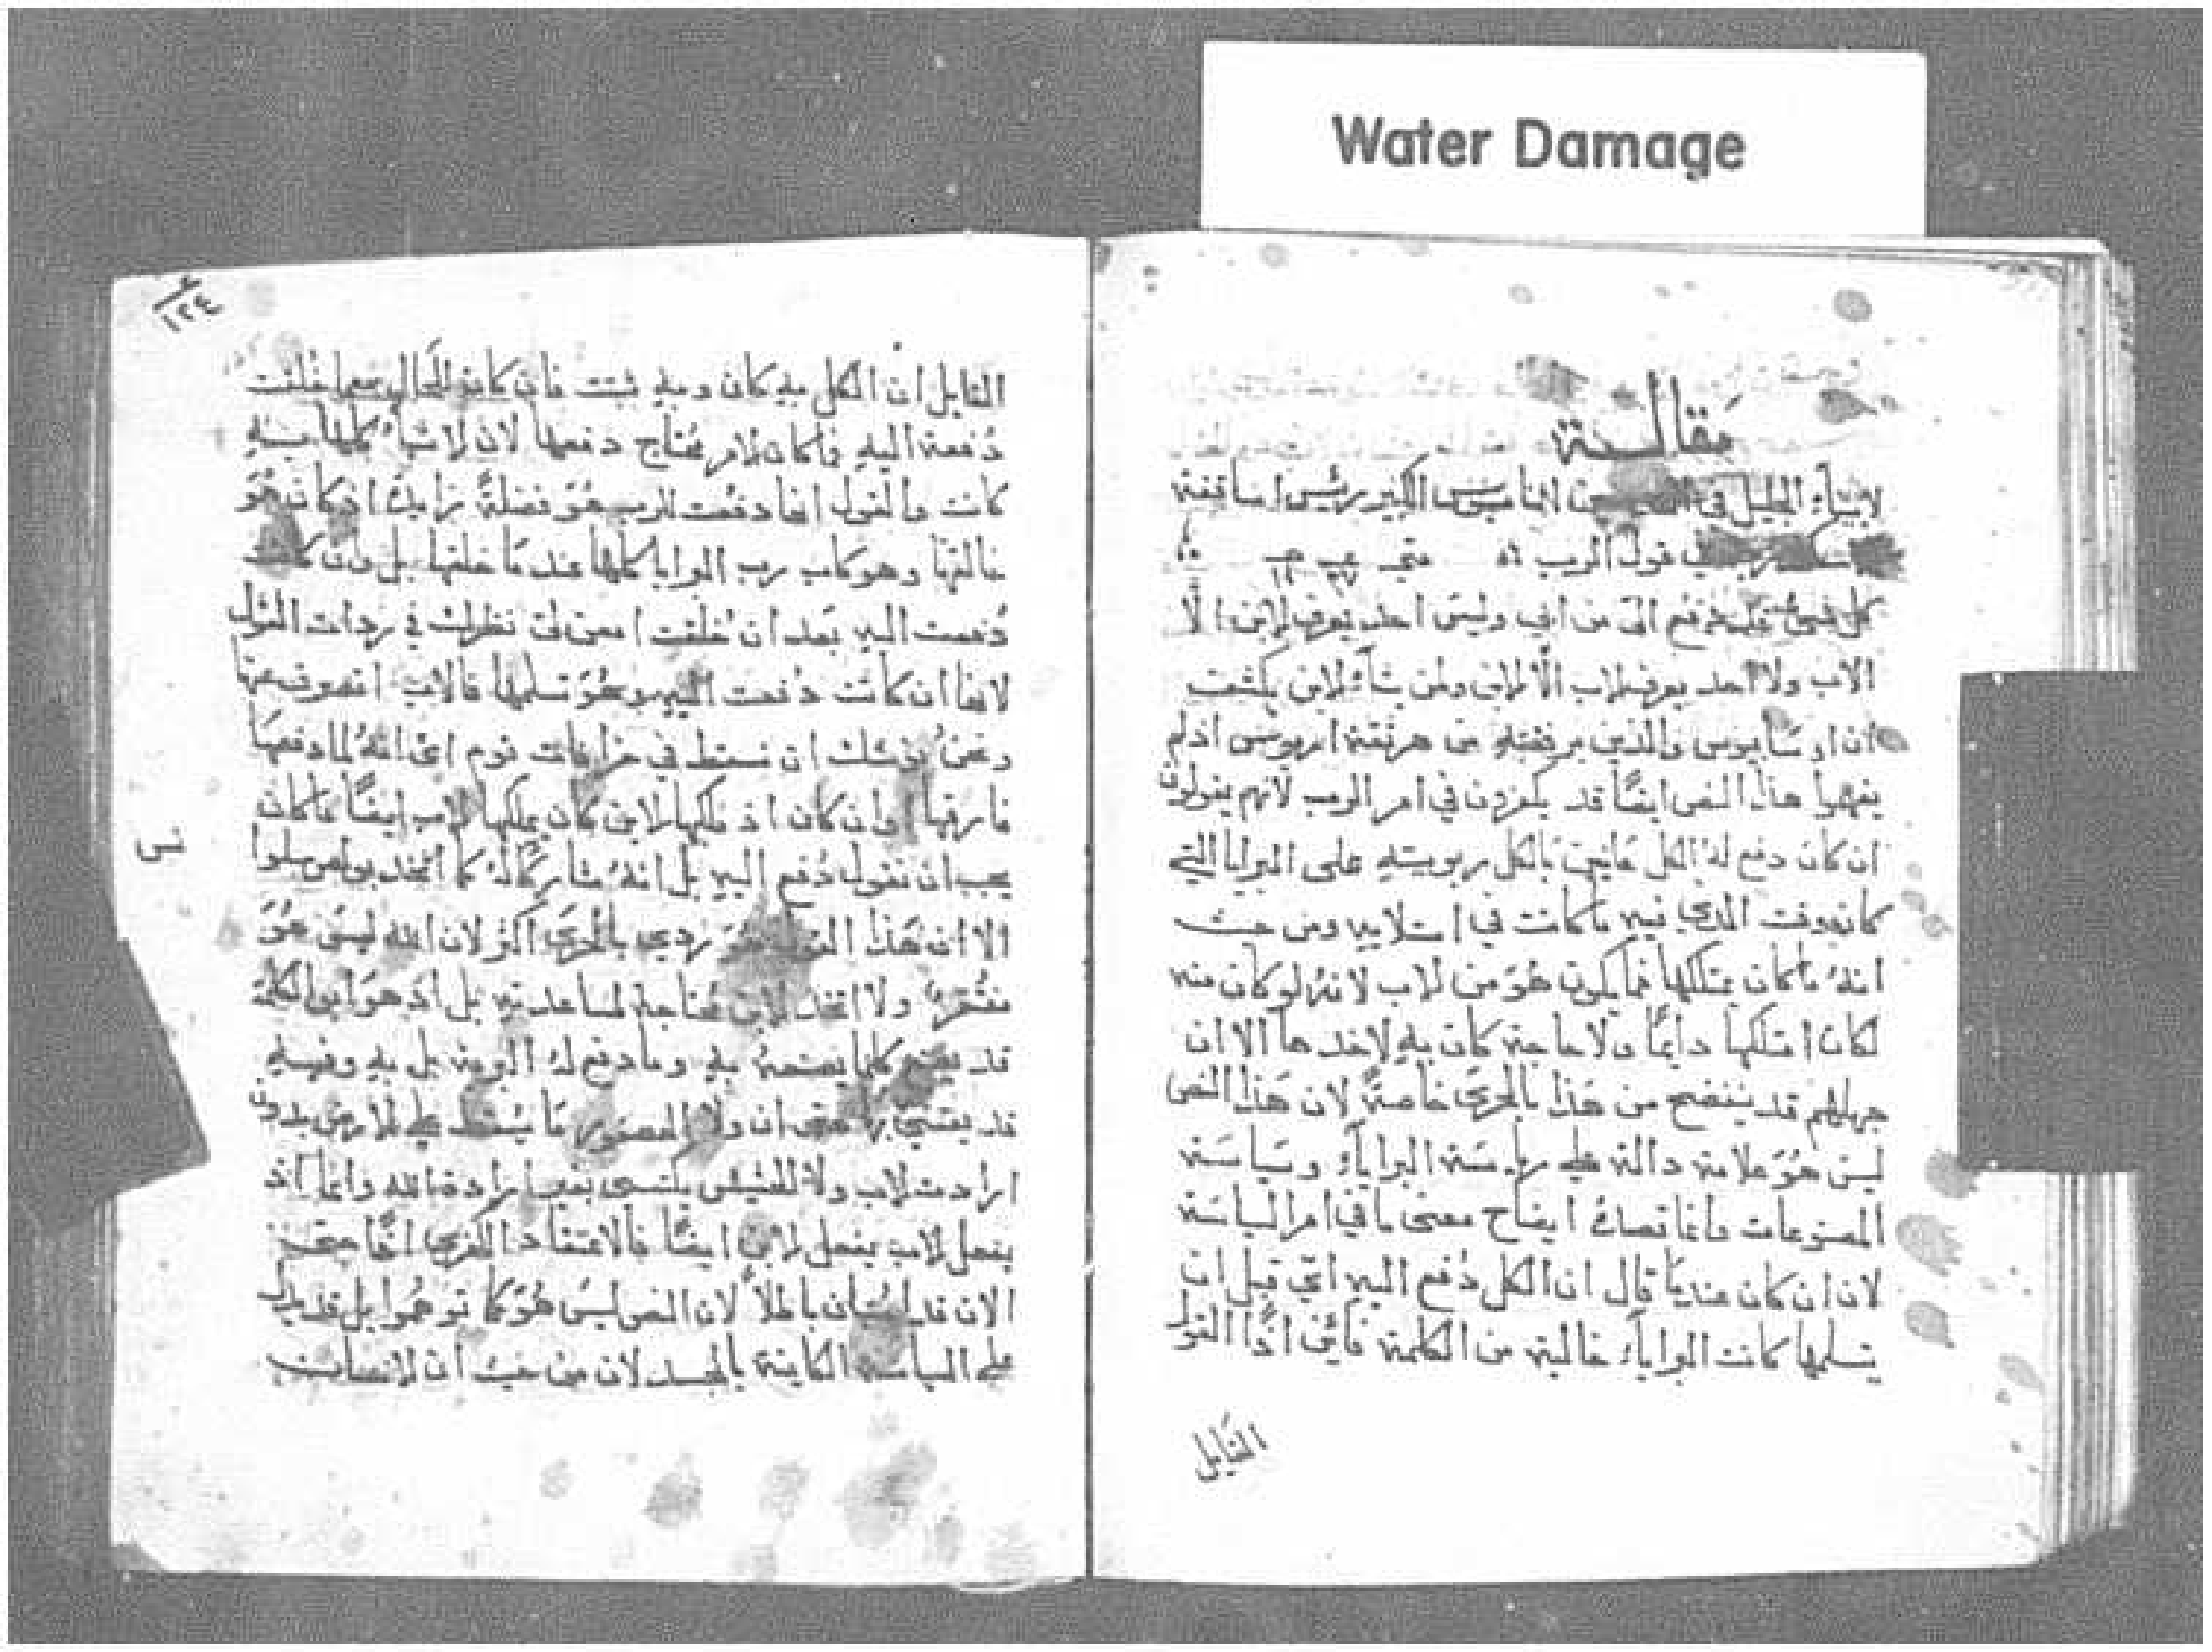 Water Damage
مقالة
لابينا الجليل في القديسين اثناسيوس الكبير رئيس اساقفة
في قول الرب متي
كل شيء قد دفع الىّ من ابي وليس احد يعرف الابن الّا
الاب ولا احد يعرف الاب الّا الابن ولمن يشاء الابن يكشف
ان اوسابيوس والذين برفقته من هرتقة اريوس اذ لم
يفهموا هذا النص ايضًا قد يكفرون في امر الرب لانهم يقولون
ان كان دفع له الكل عانين بالكل ربوبيته على البرايا التي
كان وقت الذي فيه ما كانت في استلامه ومن حيث
انهُ ما كان يمتلكها فما يكون هُوَ من الاب لانهُ لو كان منه
لكان امتلكها دايمًا ولا حاجة كان به لاخدها الا ان
جهلهم قد يتضح من هذا بالحري خاصةً لان هذا النص
ليس هُوَ علامة دالة على رياسة البرايا وسياسة
المصنوعات وانما قصده ايضاح معنى ما في امر السياسة
لان ان كان عندما قال ان الكل دُفع اليه اي قبل ان
يتسلمها كانت البرايا خالية من الكلمة فاين اذًا القول
القايل
١٢٤
القايل ان الكل به كان وبه ثبت فان كانت للحال معما خُلقت
دُفعت اليه فما كان الامر محتاج دفعها لان الاشياء كلها به
كانت والقول انها دفعت للرب هُوَ فضلةً زايدة اذ كانت هُوَ
خالقها وهو كان رب البرايا كلها عند ما خلقها بل وان كانت
دُفعت اليه بعد ان خُلقت امعن نظرك في ردات القول
لانها ان كانت دُفعت اليه وهُوَ تسلمها فالاب انصرف عنها
ونحنُ نوشك ان نسقط في خرافات قوم اي انهُ لما دفعها
فارقها وان كان اذ ملكها الابن كان يملكها الاب ايضًا ما كان
يجب ان نقول دُفع اليه بل انهُ مشاركًا لهُ كما اتخذ بولس سلوا
نس
الا ان هَذا القول هُوَ ردي بالحري اكثر لان الله ليس هُوَ
مفتقرًا ولا اتخذ الابن محتاجًا لمساعدته بل اذ هو ابو الكلمة
قد يصنع كلما يصنعهُ به وما دفع لهُ البرية بل به وفيه
قد يعتني بها حتى ان ولا العصفور ما يسقط على الارض بدون
ارادت الاب ولا الحشيش يكتسى بغير ارادة الله وانما اذ
يفعل الاب يفعل الابن ايضًا فالاعتقاد الكفري
الان قد استبان باطلاً لان النص ليس هُوَ كما توهموا بل قد يدل
على السياسة الكاينة بالجسد لان من حيث ان الانسان